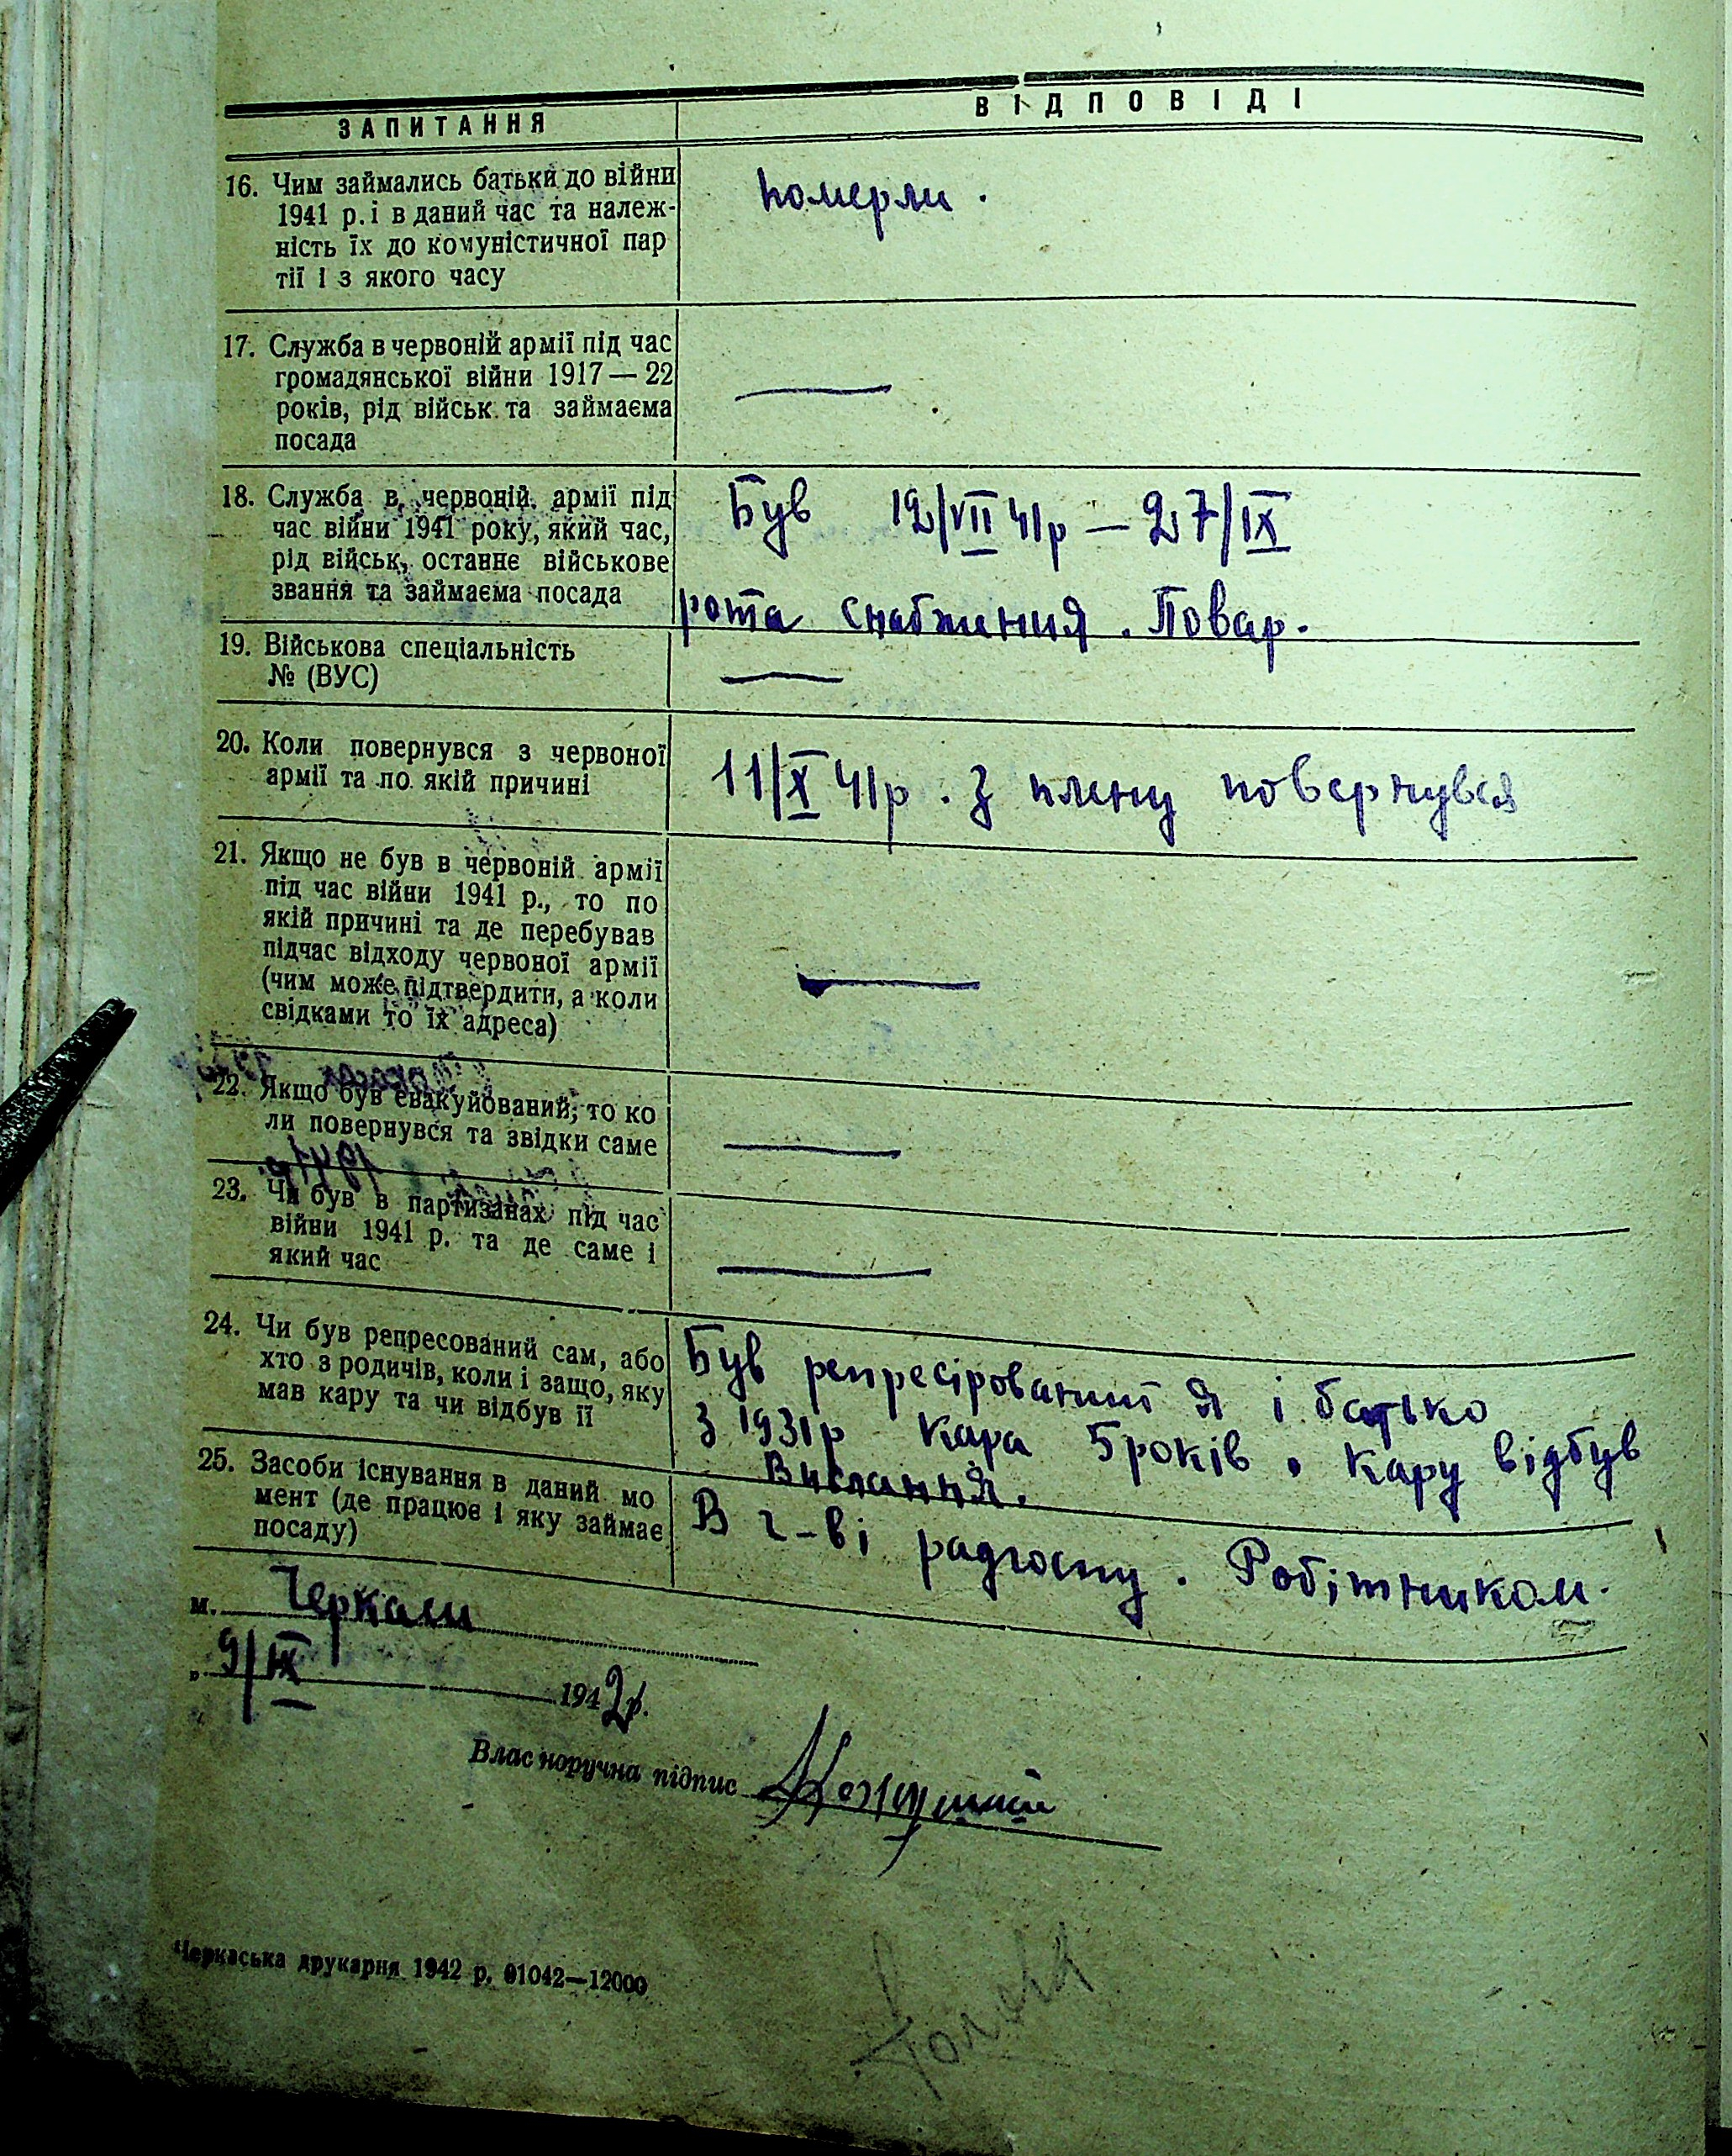 ЗАПИТАННЯ ВІДПОВІДІ
16. Чим займались батьки до війни
1941 р. і в даний час та належ-
ність їх до комуністичної пар
тії і з якого часу
померли.
17. Служба в червоній армії під час
громадянської війни 1917 — 22
років, рід військ та займаєма
посада
—
18. Служба в червоній армії під
час війни 1941 року, який час,
рід військ, останнє військове
звання та займаєма посада
Був 12/VII 41р — 27/IX
рота снабжения. Повар.
19. Військова спеціальність
№ (ВУС)
—
20. Коли повернувся з червоної
армії та по якій причині
11/X 41р. З плену повернувся
21. Якщо не був в червоній армії
під час війни 1941 р., то по
якій причині та де перебував
підчас відходу червоної армії
(чим може підтвердити, а коли
свідками то їх адреса)
—
22. Якщо був евакуйований, то ко
ли повернувся та звідки саме
—
23. Чи був в партизанах під час
війни 1941 р. та де саме і
який час
—
24. Чи був репресований сам, або
хто з родичів, коли і защо, яку
мав кару та чи відбув її
Був репресірований я і батько
з 1931р кара 5 років. Кару відбув
Вислання.
25. Засоби існування в даний мо
мент (де працює і яку займає
посаду)
В г-ві радгоспу. Робітником.
м. Черкаси
„ 9/IX 1942р.
Власноручна підпис
Черкаська друкарня 1942 р. 01042—12000